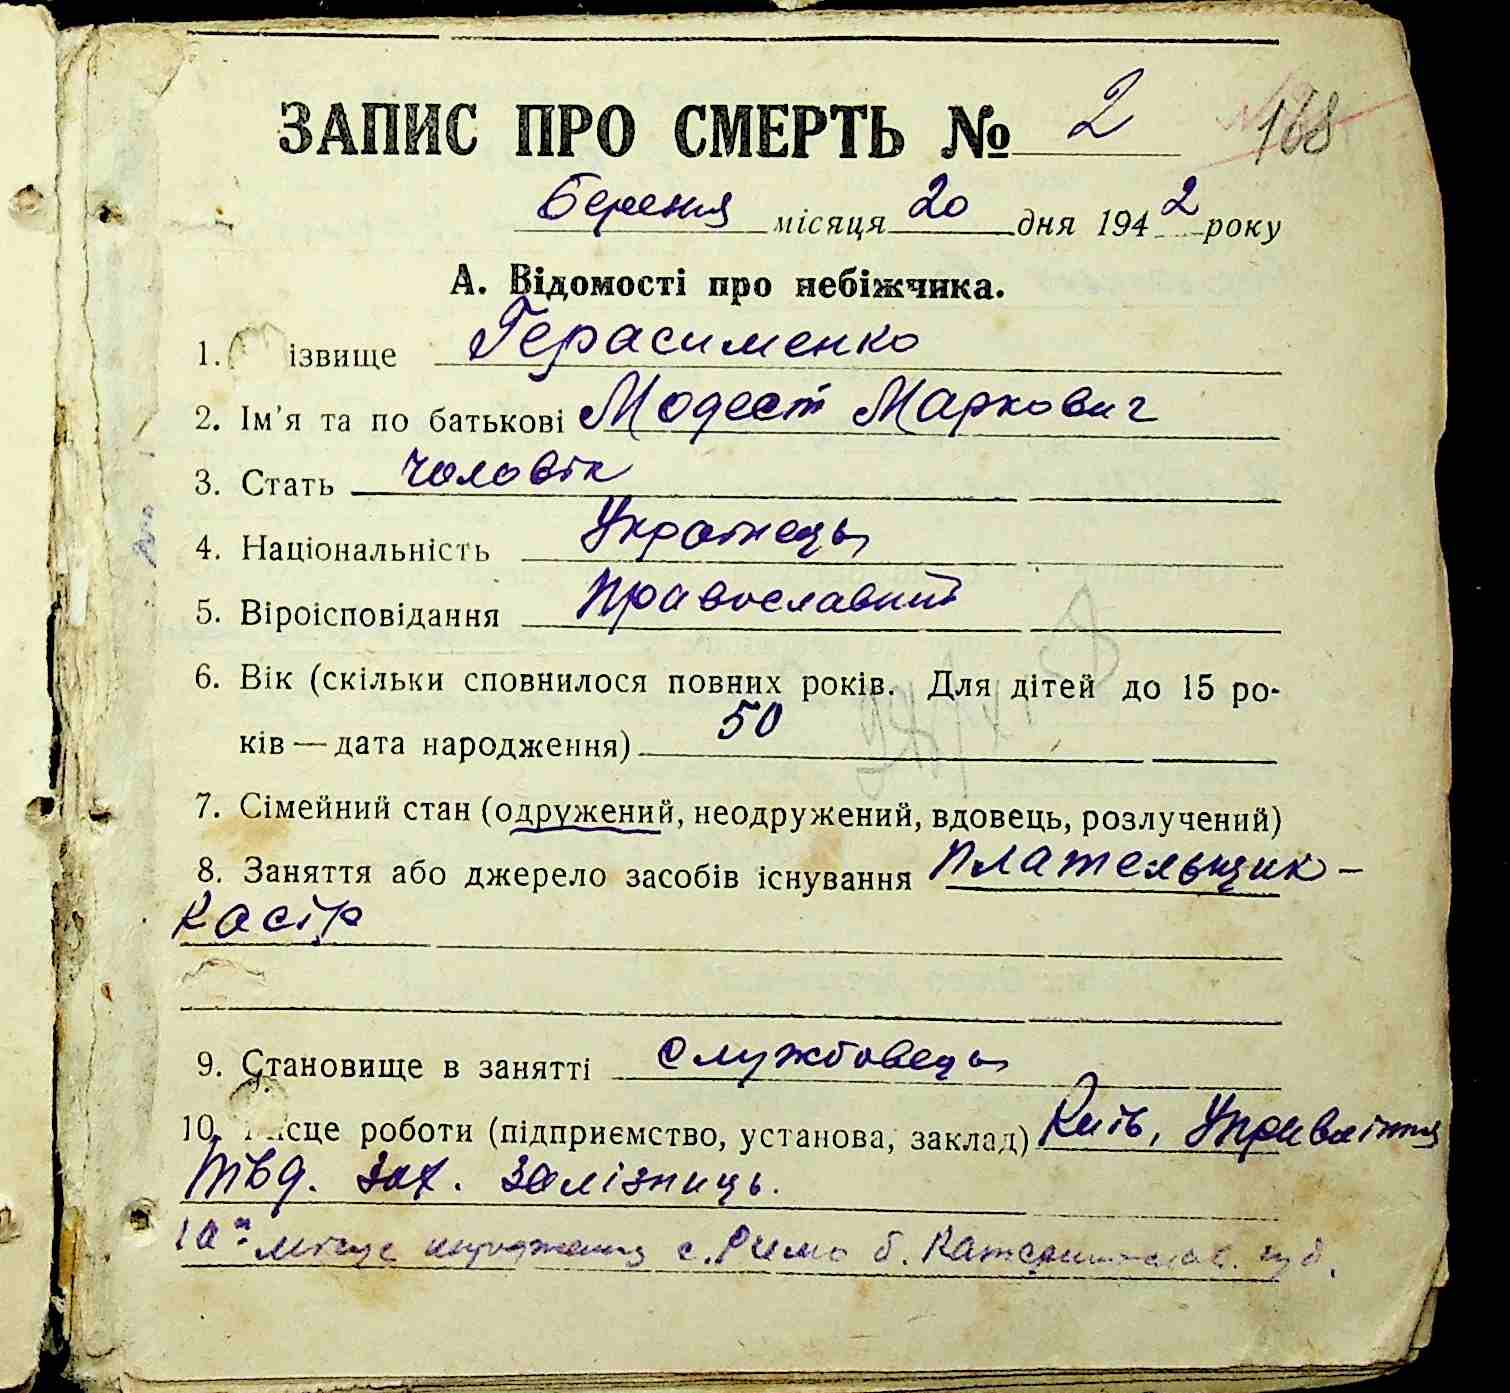 ЗАПИС ПРО СМЕРТЬ № 2 168
Березня місяця 20 дня 1942 року
А. Відомості про небіжчика.
1. ізвище Герасименко
2. Ім'я та по батькові Модест Маркович
3. Стать чоловік
4. Національність Українець
5. Віроісповідання православний
6. Вік (скільки сповнилося повних років. Для дітей до 15 ро-
ків — дата народження) 50
7. Сімейний стан (одружений, неодружений, вдовець, розлучений)
8. Заняття або джерело засобів існування плательщик-
касір
9. Становище в занятті службовець
10. Місце роботи (підприємство, установа, заклад) Київ, Управління
Півд. Зах. Залізниць.
10а місце народження с. б. Катеринослав. губ.